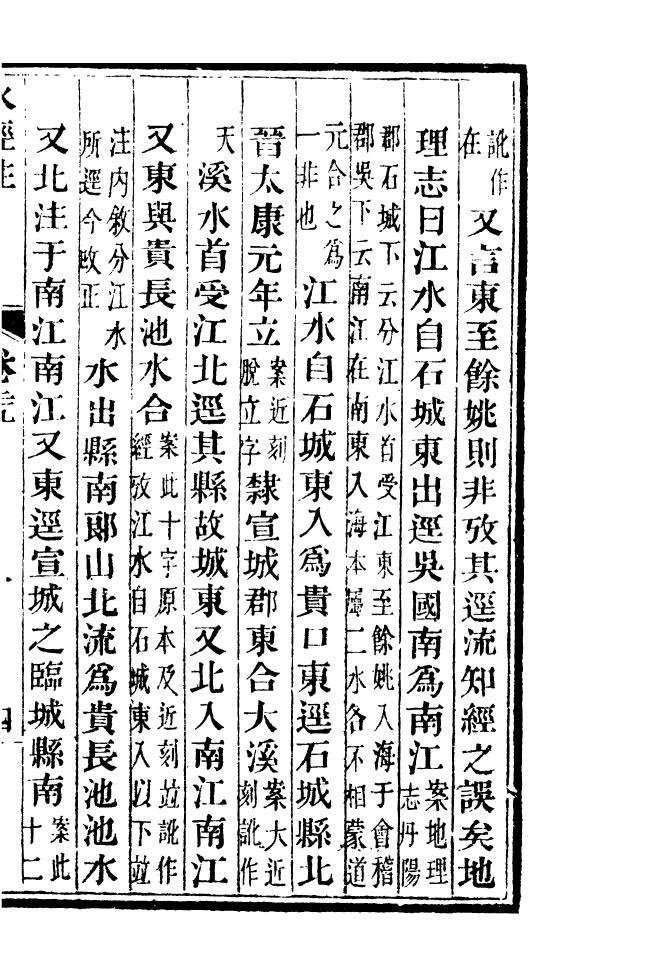 訛作在又言東至餘姚則非攷其逕流知經之誤矣地
理志曰江水自石城東出逕吳國南爲南江案地理志丹陽
郡石城下云分江水首受江東至餘姚入海于會稽郡吳下云南江在南東入海本屬二水各不相蒙道
元合之爲一非也江水自石城東入爲貴口東逕石城縣北
晉太康元年立案近刻脫立字隸宣城郡東合大溪案大近刻訛作
天溪水首受江北逕其縣故城東又北入南江南江
又東與貴長池水合案此十字原本及近刻並訛作經攷江水自石城東入以下並
注內敘分江水所逕今改正水出縣南郎山北流爲貴長池池水
又北注于南江南江又東逕宣城之臨城縣南案此十二
水經注